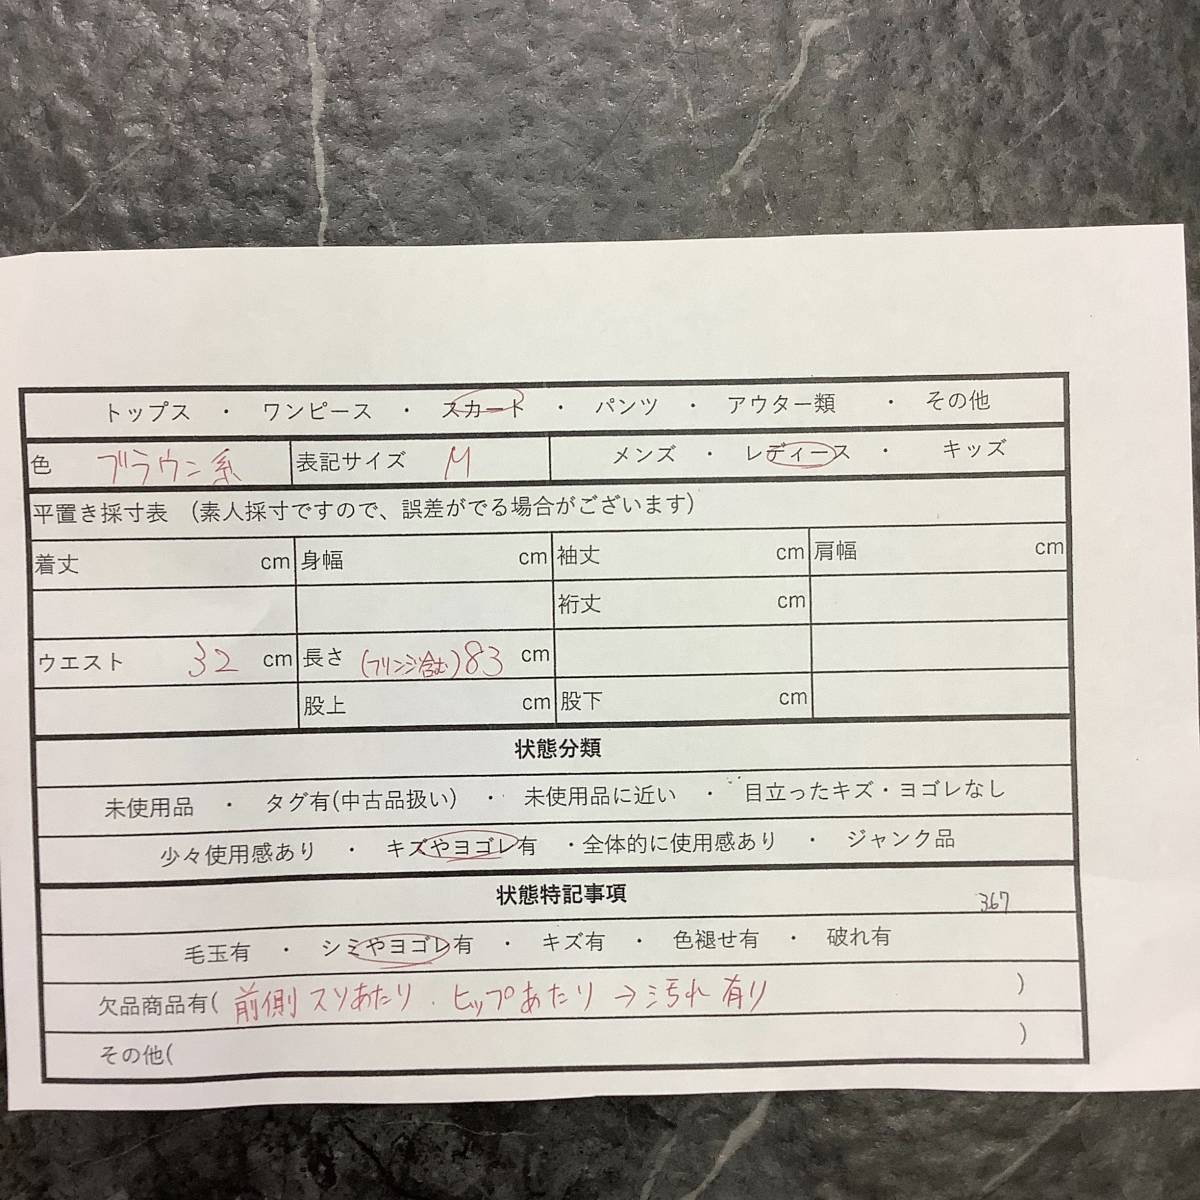 トップス ・ ワンピース ・ スカート ・ パンツ ・ アウター類 ・ その他
色 ブラウン系 表記サイズ M メンズ ・ レディース ・ キッズ
平置き採寸表 (素人採寸ですので、誤差がでる場合がございます)
着丈 cm 身幅 cm 袖丈 cm 肩幅 cm
裄丈 cm
ウエスト 32 cm 長さ (フリンジ含む) 83 cm
股上 cm 股下 cm
状態分類
未使用品 ・ タグ有(中古品扱い) ・ 未使用品に近い ・ 目立ったキズ・ヨゴレなし
少々使用感あり ・ キズやヨゴレ有 ・全体的に使用感あり ・ ジャンク品
状態特記事項 367
毛玉有 ・ シミやヨゴレ有 ・ キズ有 ・ 色褪せ有 ・ 破れ有
欠品商品有( 前側 スソあたり . ヒップあたり → 汚れ 有り )
その他( )